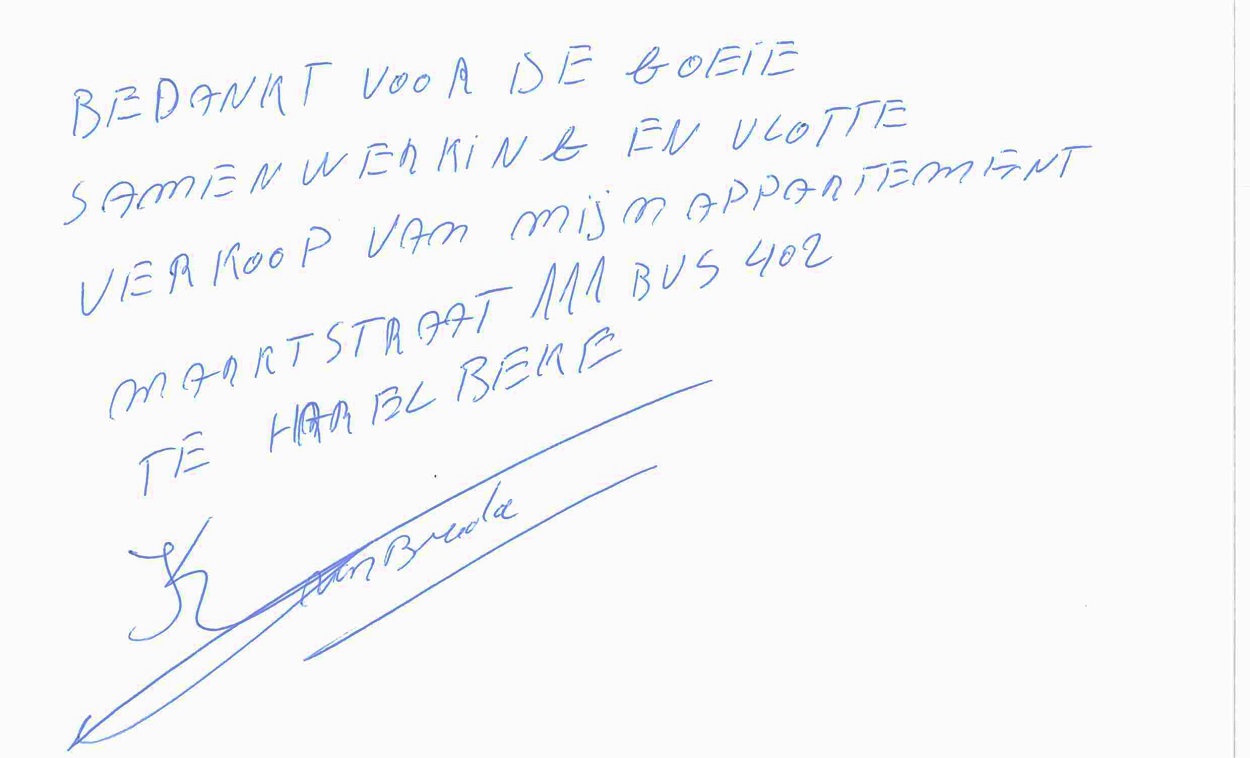 BEDANKT VOOR DE GOEIE
SAMENWERKING EN VLOTTE
VERKOOP VAN MIJN APPARTEMENT
MARKTSTRAAT 111 BUS 402
TE HARELBEKE
K